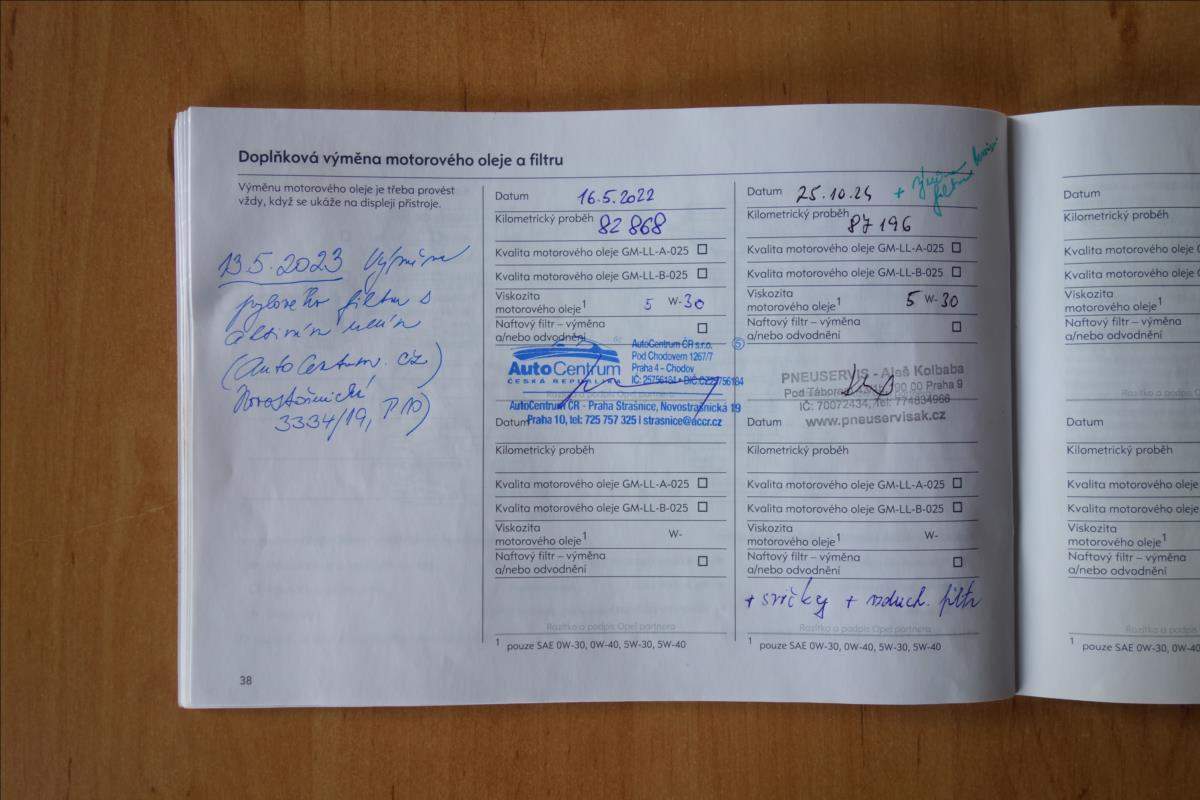 Doplňková výměna motorového oleje a filtru
Výměnu motorového oleje je třeba provést
vždy, když se ukáže na displeji přístroje.
13.5.2023 Výměna
pylového filtru s
aktivním uhlím
(AutoCentrum. ČR)
Novostrašnická
3334/19, P10)
38
Datum 16.5.2022
Kilometrický proběh 82 868
Kvalita motorového oleje GM-LL-A-025
Kvalita motorového oleje GM-LL-B-025
Viskozita
motorového oleje¹ 5 W-30
Naftový filtr – výměna
a/nebo odvodnění
AutoCentrum
ČESKÁ REPUBLIKA
AutoCentrum ČR s.r.o.
Pod Chodovem 1267/7
Praha 4 - Chodov
IČ: 25756184 • DIČ: CZ25756184
5
AutoCentrum ČR - Praha Strašnice, Novostrašnická 19
Praha 10, tel: 725 757 325 | strasnice@accr.cz
Datum
Kilometrický proběh
Kvalita motorového oleje GM-LL-A-025
Kvalita motorového oleje GM-LL-B-025
Viskozita
motorového oleje¹ W-
Naftový filtr – výměna
a/nebo odvodnění
Razítko a podpis Opel partnera
¹ pouze SAE 0W-30, 0W-40, 5W-30, 5W-40
Datum 25.10.24 + filtru
Kilometrický proběh 87 196
Kvalita motorového oleje GM-LL-A-025
Kvalita motorového oleje GM-LL-B-025
Viskozita
motorového oleje¹ 5 W-30
Naftový filtr – výměna
a/nebo odvodnění
PNEUSERVIS - Aleš Kolbaba
Pod Táborem 190 00 Praha 9
IČ: 70072434, Tel: 774834966
www.pneuservisak.cz
Datum
Kilometrický proběh
Kvalita motorového oleje GM-LL-A-025
Kvalita motorového oleje GM-LL-B-025
Viskozita
motorového oleje¹ W-
Naftový filtr – výměna
a/nebo odvodnění
+ svíčky + vzduch. filtr
Razítko a podpis Opel partnera
¹ pouze SAE 0W-30, 0W-40, 5W-30, 5W-40
Datum
Kilometrický proběh
Kvalita motorového
Kvalita motorového
Viskozita
motorového oleje¹
Naftový filtr – výměna
a/nebo odvodnění
Razítko a
Datum
Kilometrický proběh
Kvalita motorového
Kvalita motorového
Viskozita
motorového oleje¹
Naftový filtr – výměna
a/nebo odvodnění
Razítko a
¹ pouze SAE 0W-30, 0W-40